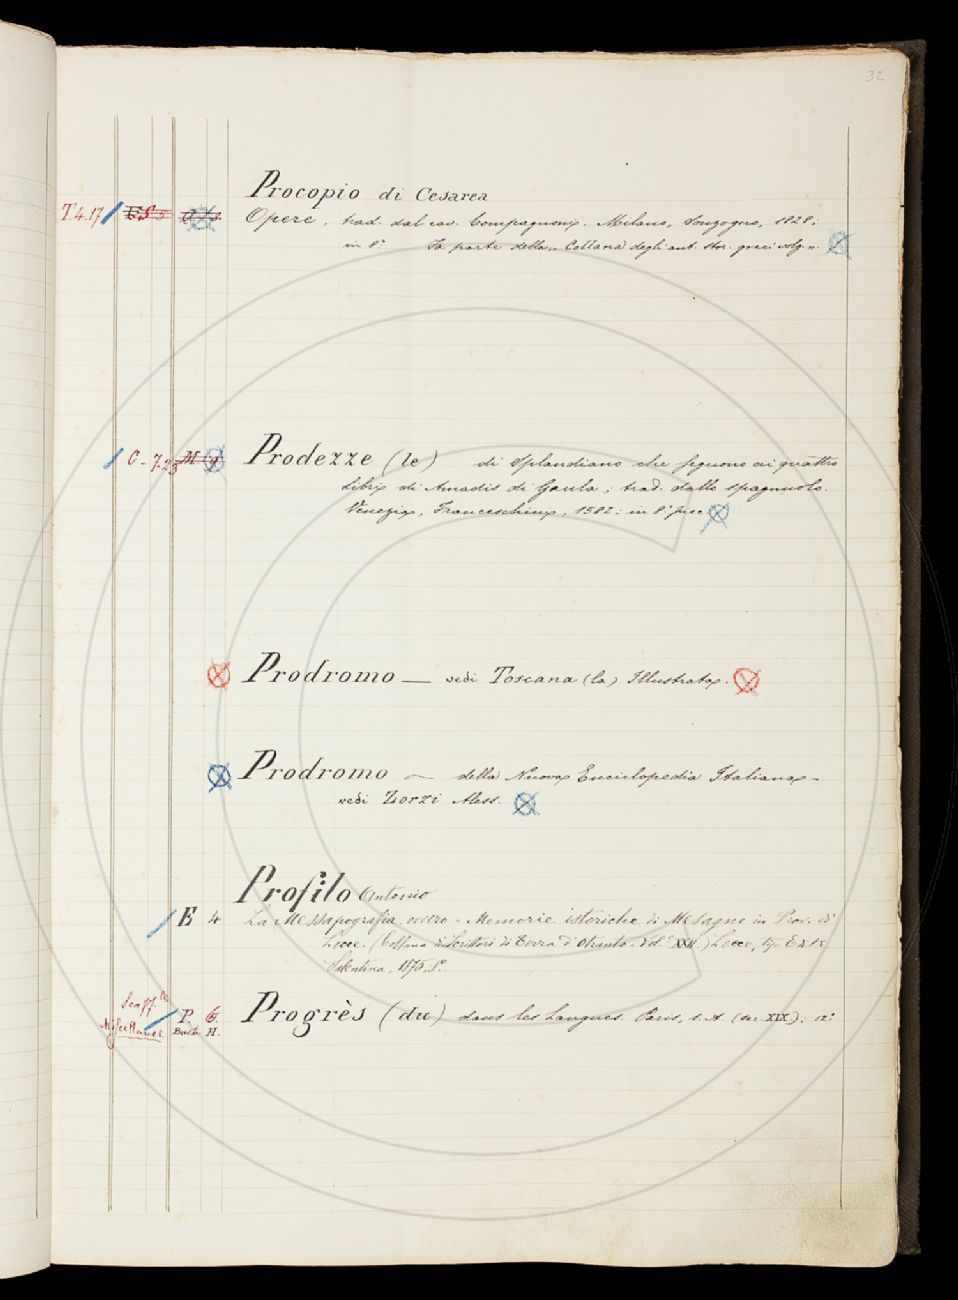 32
Procopio di Cesarea
T 4. 17 Opere, trad. dal cav. Compagnoni. Milano, Sonzogno, 1828;
in 8° Fa parte della „ Collana degli ant. stor. greci volg. „.
C - 7. 23 M Prodezze (le) di Splandiano che seguono ai quattro
libri di Amadis di Gaula; trad. dallo spagnuolo.
Venezia, Franceschini, 1582: in 8° picc.
Prodromo — vedi Toscana (la) Illustrata.
Prodromo — della Nuova Enciclopedia Italiana -
vedi Zorzi Aless.
Profilo Antonio
E 4 La Messapografia ovvero - Memorie istoriche di Mesagne in Prov. di
Lecce. (Collana di Scrittori di Terra d'Otranto. Vol. XXII.) Lecce, Tip. Edit.
Salentina, 1875, 8°.
Miscellanee P. G. Progrès (du) dans les Langues. Paris, s. A. (sec. XIX); 12°
Busta H.